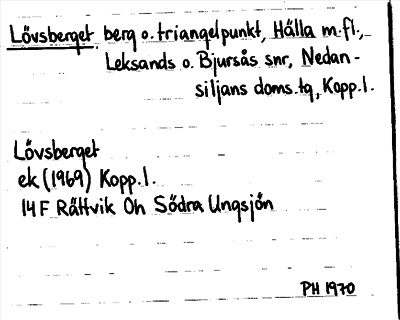 Lövsberget berg o. triangelpunkt, Hälla m.fl.,
Leksands o. Bjursås snr, Nedan-
siljans doms.tg, Kopp.l.
Lövsberget
ek (1969) Kopp.l.
14 F Rättvik Oh Södra Ungsjön
PH 1970